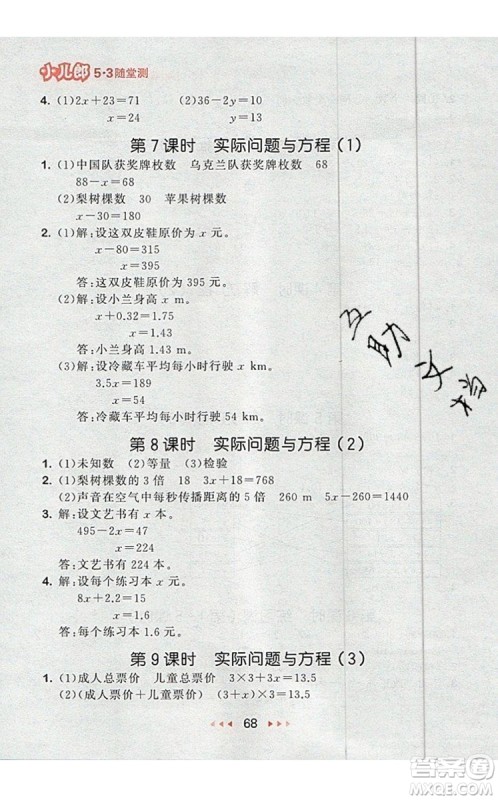 小儿郎 5·3随堂测
4. (1)2x+23=71 (2)36-2y=10
x=24 y=13
第7课时 实际问题与方程(1)
1. (1)中国队获奖牌枚数 乌克兰队获奖牌枚数 68
88-x=68
(2)梨树棵数 30 苹果树棵数
x-30=180
2. (1)解:设这双皮鞋原价为x元。
x-80=315
x=395
答:这双皮鞋原价为395元。
(2)解:设小兰身高x m。
x+0.32=1.75
x=1.43
答:小兰身高1.43 m。
(3)解:设冷藏车平均每小时行驶x km。
3.5x=189
x=54
答:冷藏车平均每小时行驶54 km。
第8课时 实际问题与方程(2)
1. (1)未知数 (2)等量 (3)检验
2. (1)梨树棵数的3倍 18 3x+18=768
(2)声音在空气中每秒传播距离的5倍 260 m 5x-260=1440
3. 解:设文艺书有x本。
495-2x=47
x=224
答:文艺书有224本。
4. 解:设每个练习本x元。
8x+2.2=15
x=1.6
答:每个练习本1.6元。
第9课时 实际问题与方程(3)
1. (1)成人总票价 儿童总票价 3×3+3x=13.5
(2)(成人票价+儿童票价) (3+x)×3=13.5
68
互助文档
作业帮